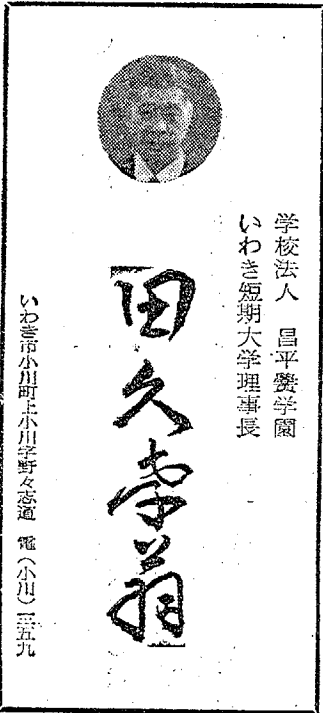 学校法人 昌平黌学園
いわき短期大学理事長
田久孝翁
いわき市小川町上小川字野々志道 電(小川)一三五九